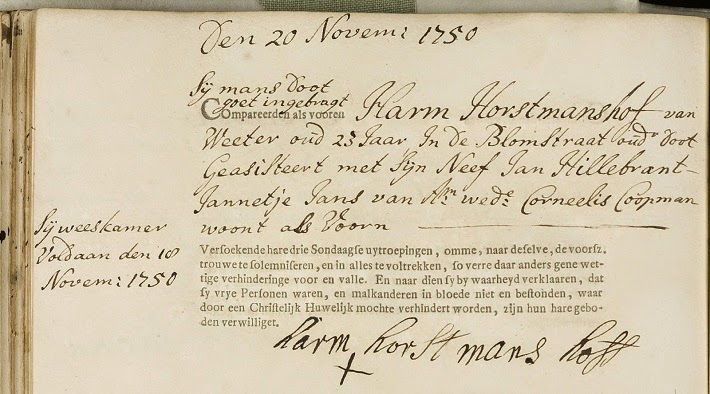 Den 20 Novem: 1750
Sij mans doot
goet ingebragt
Compareerden als vooren Harm Horstmanshof van
Weeter oud 23 Jaar In de Blomstraat oudrs doot
Geasisteert met Sijn Neef Jan Hillebrant-
Jannetje Jans van Am wede Corneelis Coopman
woont als Voorn
Sij weeskamer
Voldaan den 18
Novem: 1750
Versoekende hare drie Sondaagse uytroepingen, omme, naar deselve, de voorsz.
trouwe te solemniseren, en in alles te voltrekken, so verre daar anders gene wet-
tige verhinderinge voor en valle. En naar dien sy by waarheyd verklaaren, dat
sy vrye Personen waren, en malkanderen in bloede niet en bestonden, waar
door een Christelijk Huwelijk mochte verhindert worden, zijn hun hare gebo-
den verwilliget.
harm horst mans hoff